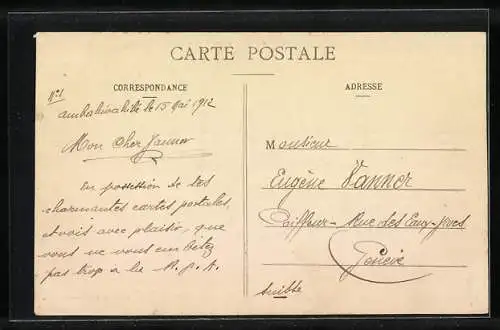 CARTE POSTALE
CORRESPONDANCE
ADRESSE
N°1
le 15 Mai 1912
Mon Cher Vanner
En possession de tes
charmantes cartes postales,
et vois avec plaisir, que
vous ne vous
pas trop à la
Monsieur
Eugène Vanner
Coiffeur - Rue des Eaux-Vives
Genève
Suisse